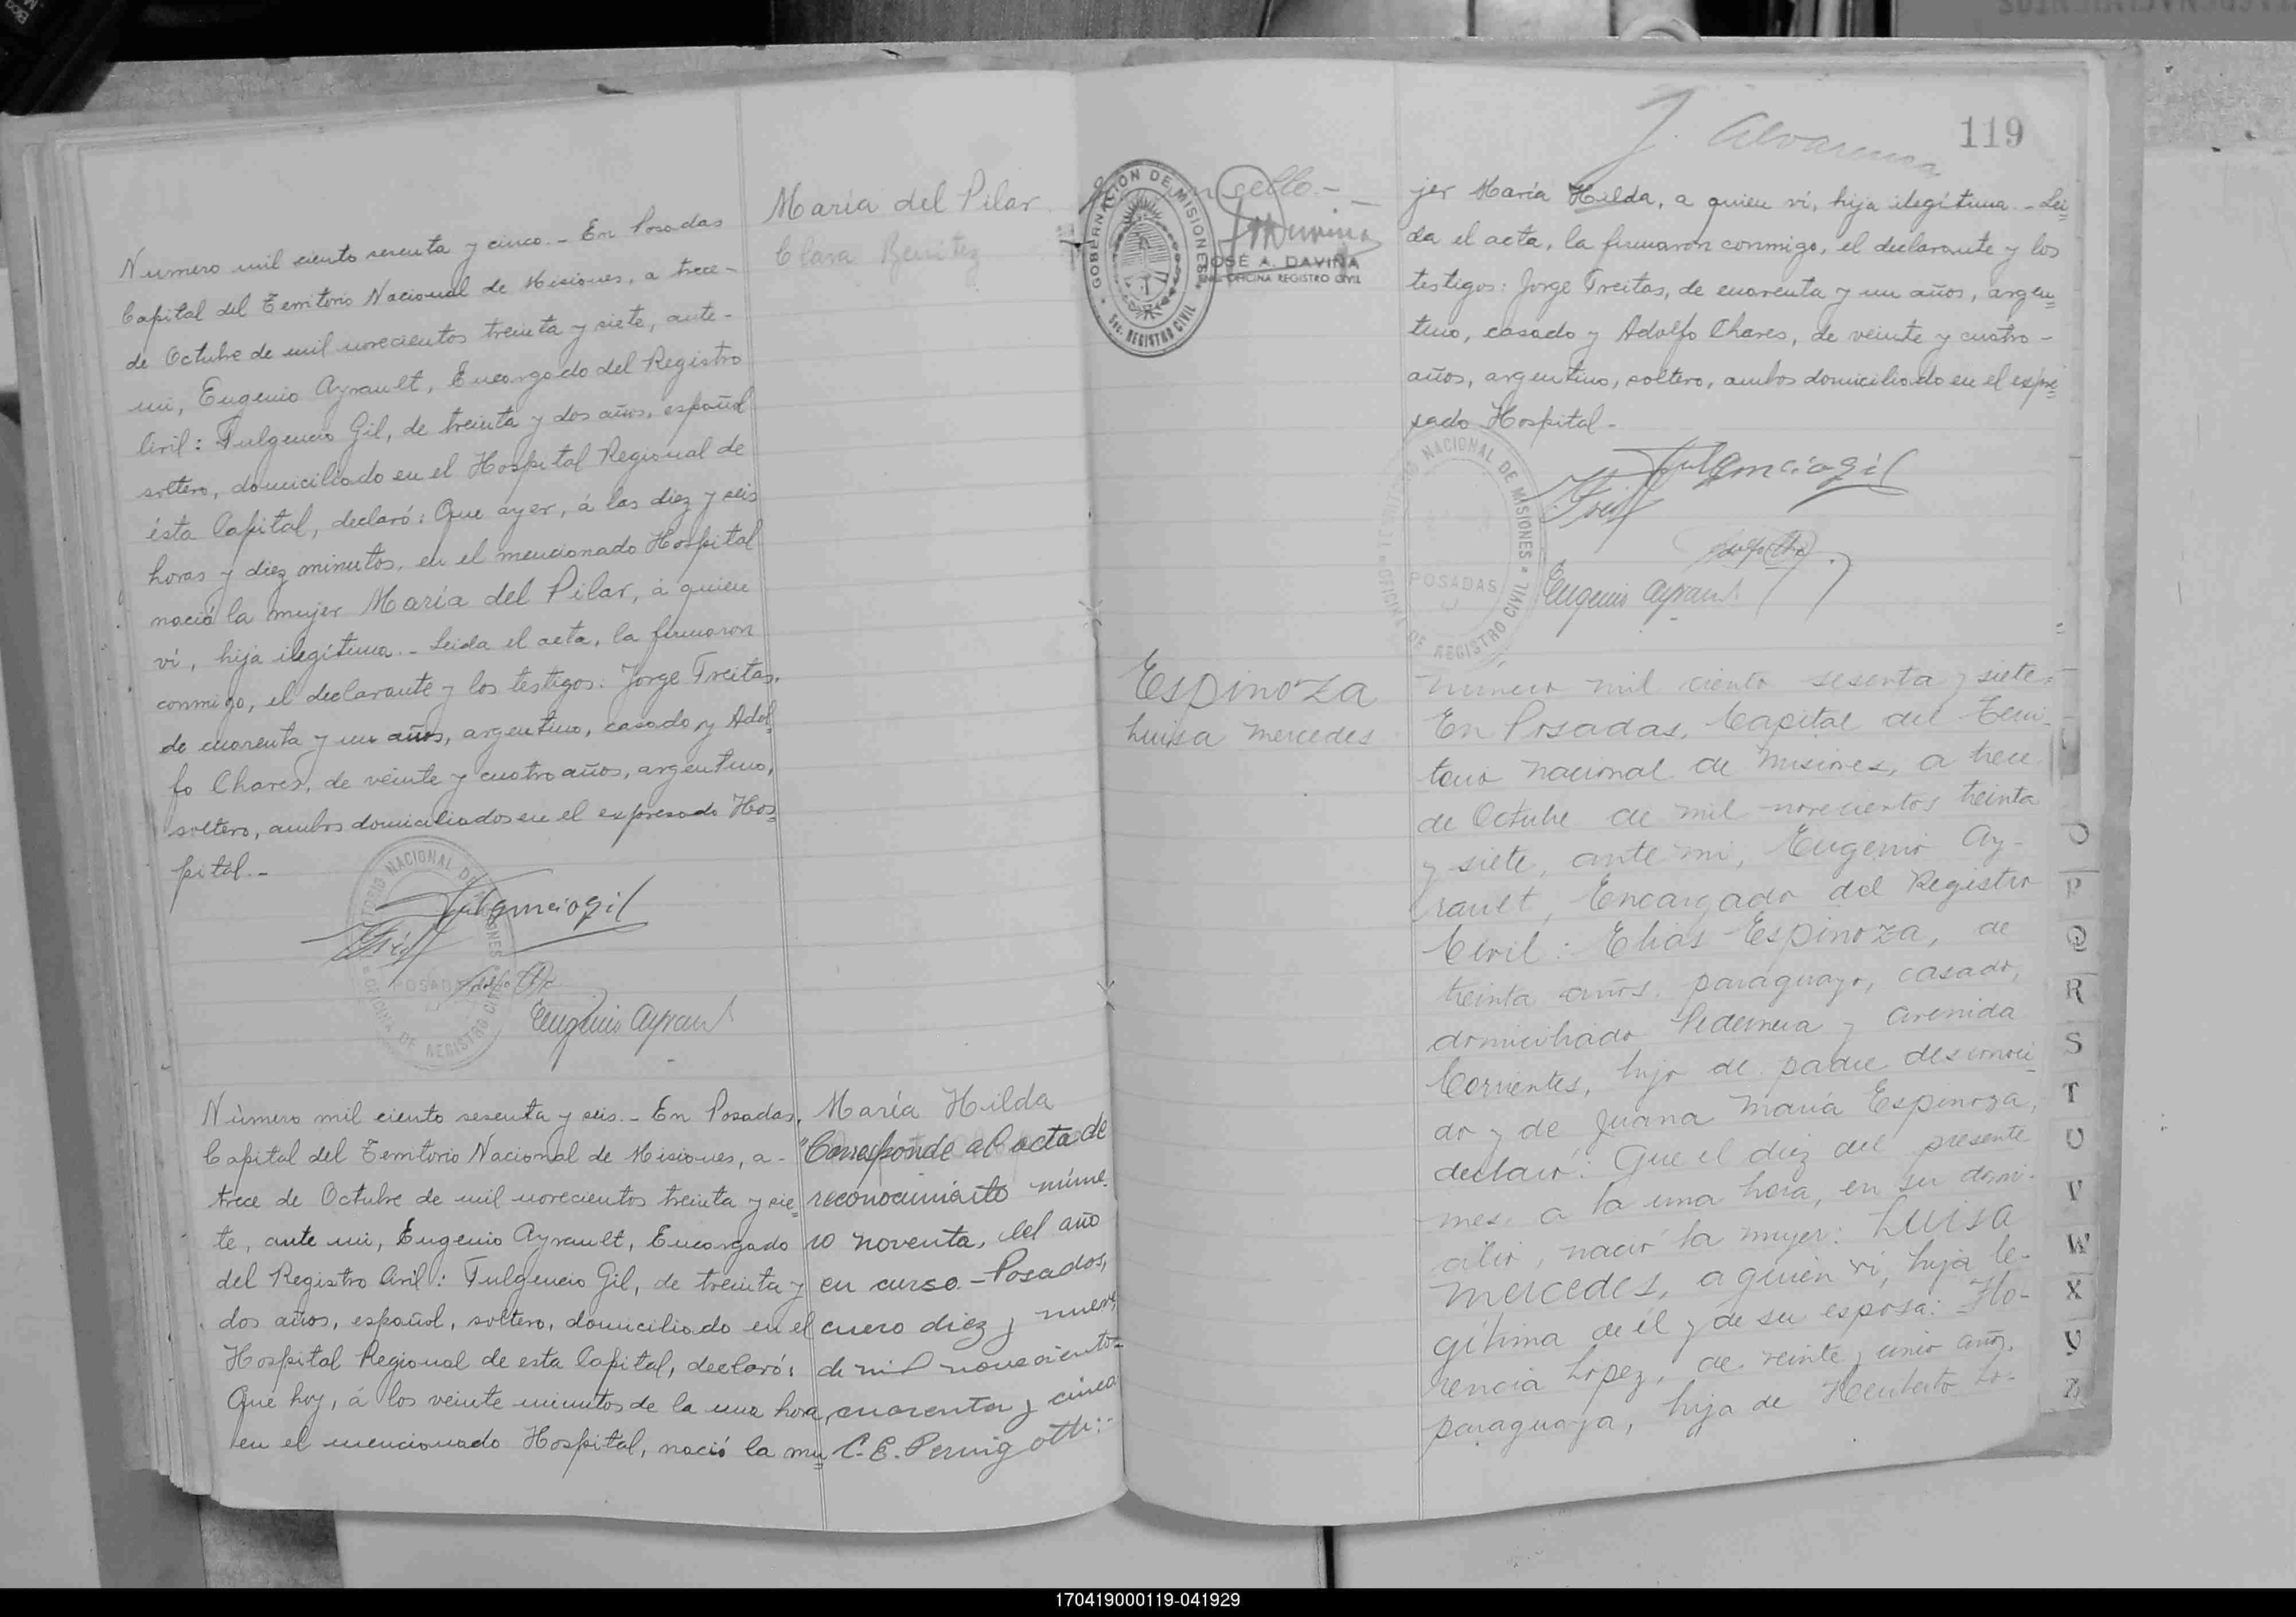 María del Pilar
Clara Benitez
Numero mil ciento sesenta y cinco.- En Posadas
Capital del Territorio Nacional de Misiones, a trece-
de Octubre de mil novecientos treinta y siete, ante-
mi, Eugenio Ayrault, Encargado del Registro
Civil: Fulgencio Gil, de treinta y dos años, español
soltero, domiciliado en el Hospital Regional de
ésta Capital, declaró: Que ayer, á las diez y seis
horas y diez minutos, en el mencionado Hospital
nació la mujer María del Pilar, á quien
ví, hija ilegítima.- Leida el acta, la firmaron
conmigo, el declarante y los testigos: Jorge Freitas,
de cuarenta y un años, argentino, casado, y Adol=
fo Chares, de veinte y cuatro años, argentino,
soltero, ambos domiciliados en el expresado Hos=
pital.-
TERRITORIO NACIONAL DE MISIONES
POSADAS
OFICINA DE REGISTRO CIVIL
Fulgencio gil
Eugenio Ayrault
María Hilda
"Corresponde al acta de
reconocimiento núme-
ro noventa, del año
en curso.- Posadas,
enero diez y nueve
de mil novecientos=
cuarenta y cinco
C. E. Pernigotti:-
Número mil ciento sesenta y seis.- En Posadas,
Capital del Territorio Nacional de Misiones, a-
trece de Octubre de mil novecientos treinta y sie=
te, ante mi, Eugenio Ayrault, Encargado
del Registro Civil: Fulgencio Gil, de treinta y
dos años, español, soltero, domiciliado en el
Hospital Regional de esta Capital, declaró:
Que hoy, á los veinte minutos de la una hora,
en el mencionado Hospital, nació la mu=
J. Alvarenga
119
sello.-
GOBERNACION DE MISIONES
Sec. REGISTRO CIVIL
JOSÉ A. DAVIÑA
OFICINA REGISTRO CIVIL
jer María Hilda, a quien ví, hija ilegítima.- Lei=
da el acta, la firmaron conmigo, el declarante y los
testigos: Jorge Freitas, de cuarenta y un años, argen=
tino, casado y Adolfo Chares, de veinte y cuatro-
años, argentino, soltero, ambos domiciliado en el expre=
sado Hospital-
TERRITORIO NACIONAL DE MISIONES
POSADAS
OFICINA DE REGISTRO CIVIL
Fulgencio gil
Eugenio Ayrault
Espinoza
Luisa Mercedes
Numero mil ciento sesenta y siete=
En Posadas, Capital del Terri-
torio Nacional de Misiones, a trece
de Octubre de mil novecientos treinta
y siete, ante mi, Eugenio Ay-
rault, Encargado del Registro
Civil: Elias Espinoza, de
treinta años, paraguayo, casado,
domiciliado Pedernera y avenida
Corrientes, hijo de padre desconoci-
do y de Juana Maria Espinoza,
declaró: Que el diez del presente
mes, a la una hora, en su domi-
cilio, nació la mujer: Luisa
Mercedes, a quien ví, hija le-
gitima de él y de su esposa: Flo-
rencia Lopez, de veinte y cinco años,
paraguaya, hija de Heriberto Lo-
O
P
Q
R
S
T
U
V
W
X
Y
Z
170419000119-041929